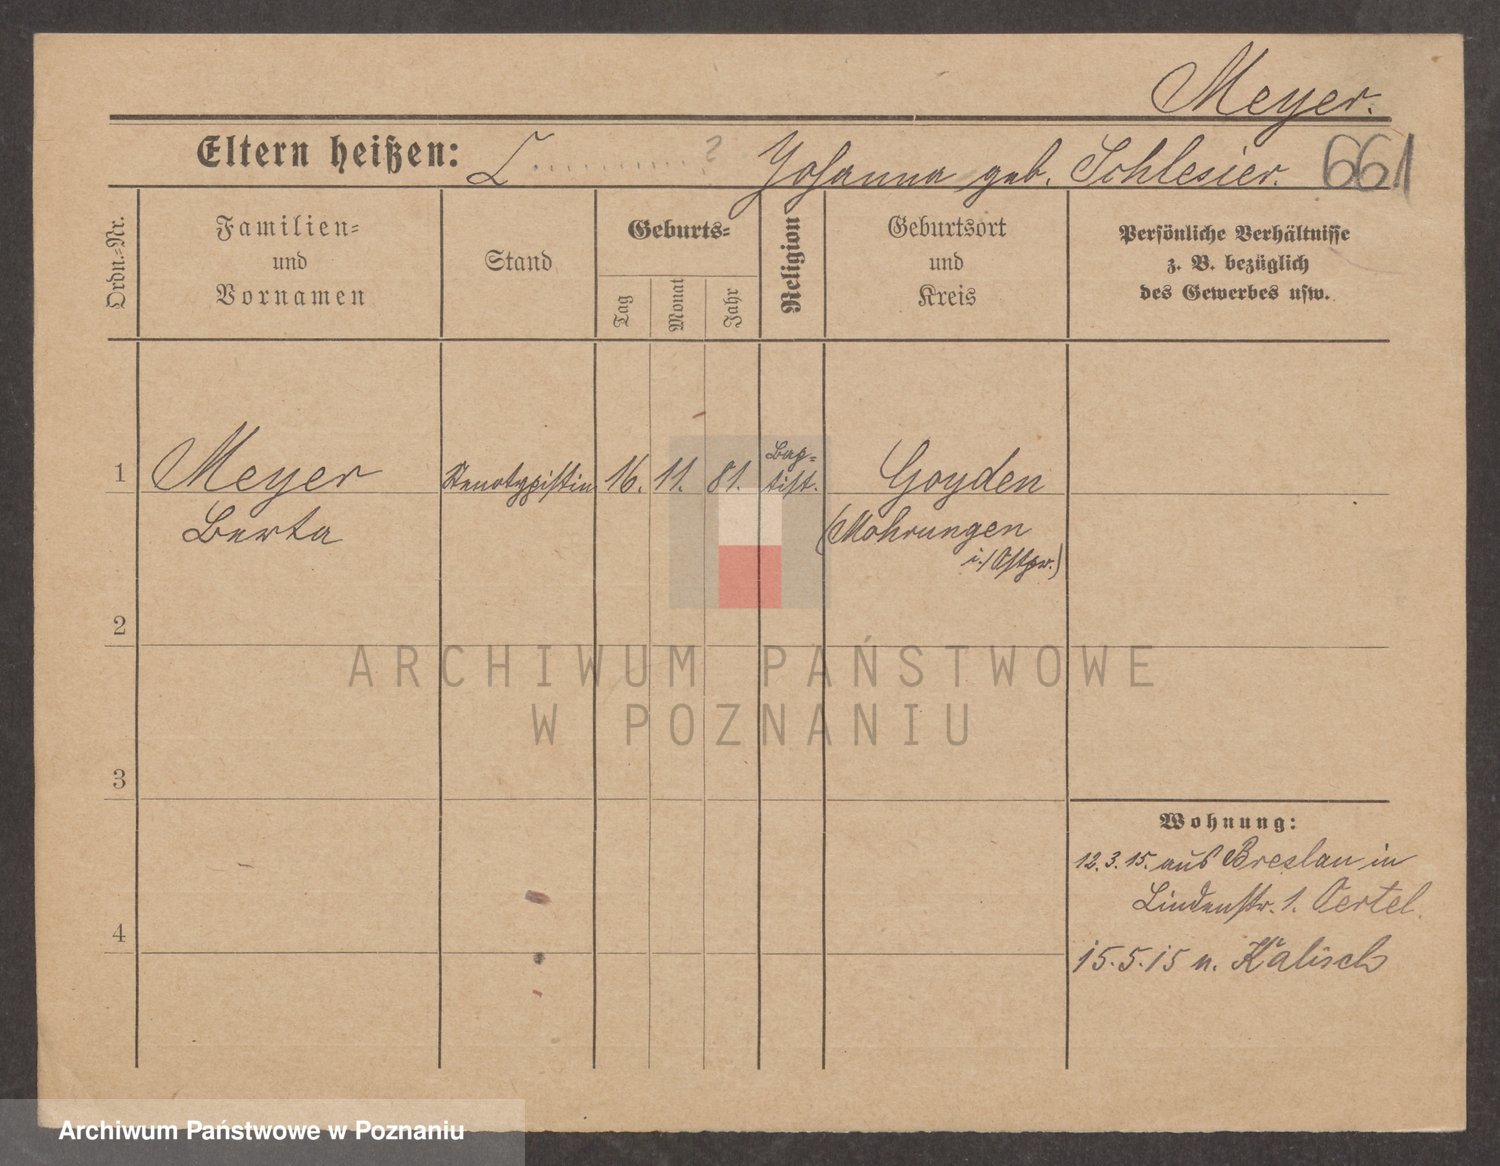 Meyer.
Eltern heißen: L ........... ? Johanna geb. Schlesier. 661
Ordn.=Nr.
Familien=
und
Vornamen
Stand
Geburts=
Tag
Monat
Jahr
Religion
Geburtsort
und
Kreis
Persönliche Verhältnisse
z. B. bezüglich
des Gewerbes usw.
1 Meyer Stenotypistin 16. 11. 81. Bap=
tist. Goyden
Berta (Mohrungen
i./Ostpr.)
2
ARCHIWUM PAŃSTWOWE
W POZNANIU
3
Wohnung:
12.3.15. aus Breslau in
Lindenstr. 1. Oertel.
4
15.5.15 n. Kalisch
Archiwum Państwowe w Poznaniu